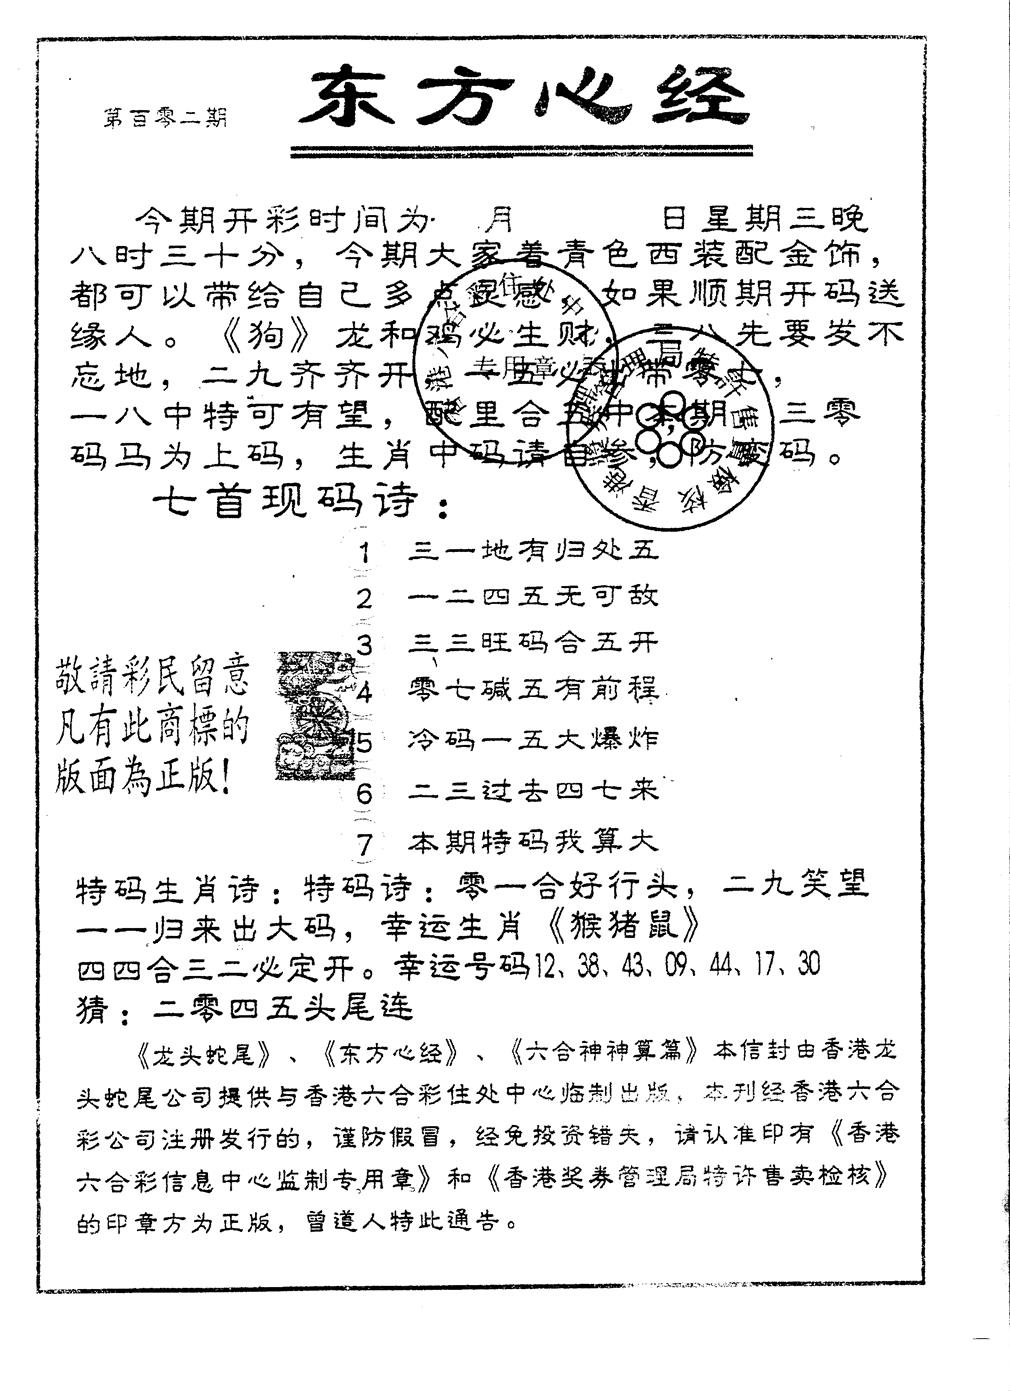 东方心经
第百零二期
今期开彩时间为 月 日星期三晚
八时三十分，今期大家着青色西装配金饰，
都可以带给自己多点灵感，如果顺期开码送
缘人。《狗》龙和鸡必生财，三八先要发不
忘地，二九齐齐开，一五必生带零七，
一八中特可有望，配里合五中本期，三零
码马为上码，生肖中码请自参，防 码。
七首现码诗：
1 三一地有归处五
2 一二四五无可敌
3 三三旺码合五开
4 零七碱五有前程
5 冷码一五大爆炸
6 二三过去四七来
7 本期特码我算大
敬請彩民留意
凡有此商標的
版面為正版！
特码生肖诗：特码诗：零一合好行头，二九笑望
一一归来出大码，幸运生肖《猴猪鼠》
四四合三二必定开。幸运号码12、38、43、09、44、17、30
猜：二零四五头尾连
《龙头蛇尾》、《东方心经》、《六合神神算篇》本信封由香港龙
头蛇尾公司提供与香港六合彩住处中心临制出版，本刊经香港六合
彩公司注册发行的，谨防假冒，经免投资错失，请认准印有《香港
六合彩信息中心监制专用章》和《香港奖券管理局特许售卖检核》
的印章方为正版，曾道人特此通告。